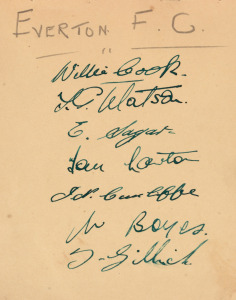 EVERTON F. C.
Willie Cook.
T. G. Watson.
E. Sagar
Tom Lawton
J. N. Cunliffe
W Boyes.
T. Gillick.